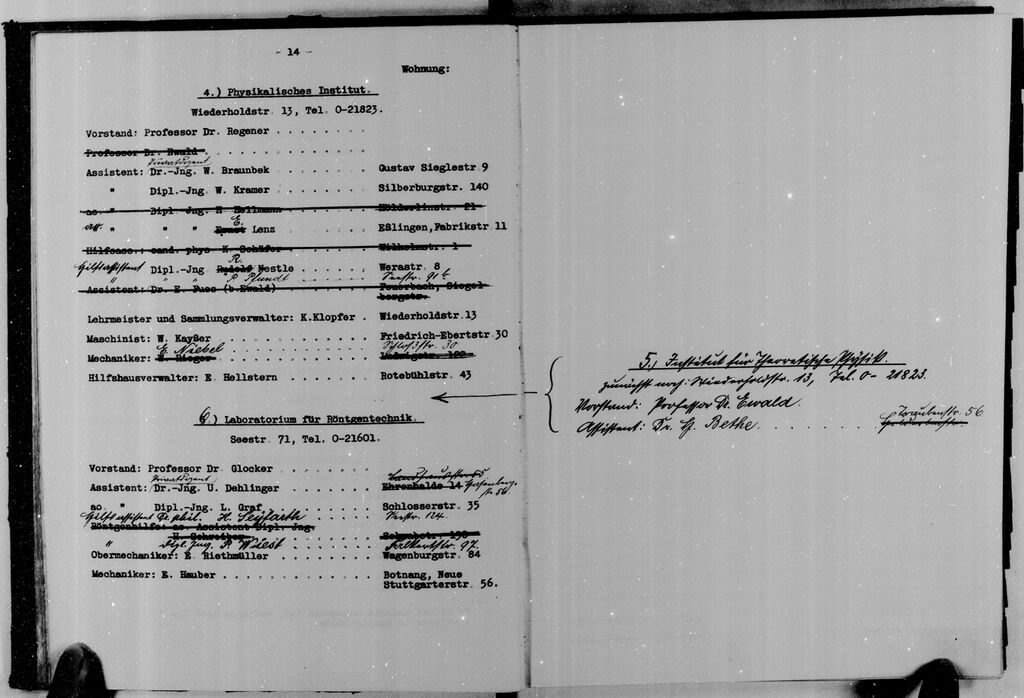 - 14 -
Wohnung:
4.) Physikalisches Institut.
Wiederholdstr. 13, Tel. 0-21823.
Vorstand: Professor Dr. Regener . . . . . . . .
Professor Dr. Ewald . . . . . . . . . . .
Privatdozent
Assistent: Dr.-Jng. W. Braunbek . . . . . . . . Gustav Sieglestr. 9
" Dipl.-Jng. W. Kramer . . . . . . . . Silberburgstr. 140
ao. " Dipl.-Jng. H. Hellmann . . . . . . . Hölderlinstr. 21
E.
ao. " " " Ernst Lenz . . . . . . . Eßlingen, Fabrikstr. 11
Hilfsass.: cand. phys. K. Schäfer . . . . . . . Wilhelmstr. 1
R.
Hilfsassistent Dipl.-Jng. Rudolf Nestle . . . . . . Werastr. 8
" " " P. Pfundt . . . . . . Seestr. 91
Assistent: Dr. E. Fues (b. Ewald) . . . . . . . Feuerbach, Siegel-
bergstr.
Lehrmeister und Sammlungsverwalter: K. Klopfer . Wiederholdstr. 13
Maschinist: W. Kayßer . . . . . . . . . . . . Friedrich-Ebertstr. 30
E. Niebel . . . . . . Schloßstr. 30
Mechaniker: E. Rieger . . . . . . . . . . . . Ludwigstr. 122
Hilfshausverwalter: E. Hellstern . . . . . . . . Rotebühlstr. 43
6.) Laboratorium für Röntgentechnik.
Seestr. 71, Tel. 0-21601.
Vorstand: Professor Dr. Glocker . . . . . . . .
Privatdozent
Assistent: Dr.-Jng. U. Dehlinger . . . . . . . Ehrenhalde 14
ao. " Dipl.-Jng. L. Graf . . . . . . . . Schlosserstr. 35
Hilfsassistent Dr. phil. H. Seyfarth . . . . . . Seestr. 124
Röntgenhilfe: ao. Assistent Dipl. Jng.
H. Schreiber . . . . . . Schwabstr. 138
" Dipl. Jng. P. Wiest . . . . . . Falkertstr. 97
Obermechaniker: E. Riethmüller . . . . . . . . Wagenburgstr. 84
Mechaniker: E. Hauber . . . . . . . . . . . . Botnang, Neue
Stuttgarterstr. 56.
5.) Institut für Theoretische Physik.
zunächst noch: Wiederholdstr. 13, Tel. 0-21823.
Vorstand: Professor Dr. Ewald.
Assistent: Dr. H. Bethe . . . . . . . . . . Traubenstr. 56